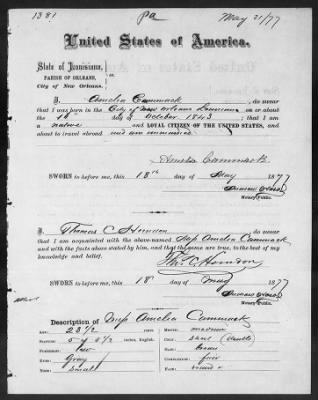 1381 pa May 21/77
United States of America.
State of Louisiana,
PARISH OF ORLEANS,
City of New Orleans.
I, Amelia Cammack, do swear
that I was born in the City of New Orleans Louisiana or about
the day of October 1843; that I am a
native and LOYAL CITIZEN OF THE UNITED STATES, and
about to travel abroad and am unmarried
Amelia Cammack
SWORN to before me, this 18th May 1877
Notary Public.
I, Thomas C Herndon, do swear
that I am acquainted with the above-named Miss Amelia Cammack
and with the facts above stated by him, and that the same are true, to the best of my
knowledge and belief.
Thos. C. Herndon
SWORN to before me, this 18 May 1877
Notary Public.
Description of Miss Amelia Cammack
AGE: years MOUTH: medium
STATURE: 5 ft inches, English. CHIN:
FOREHEAD: low HAIR: brown
EYES: Gray COMPLEXION: fair
NOSE: small FACE: round